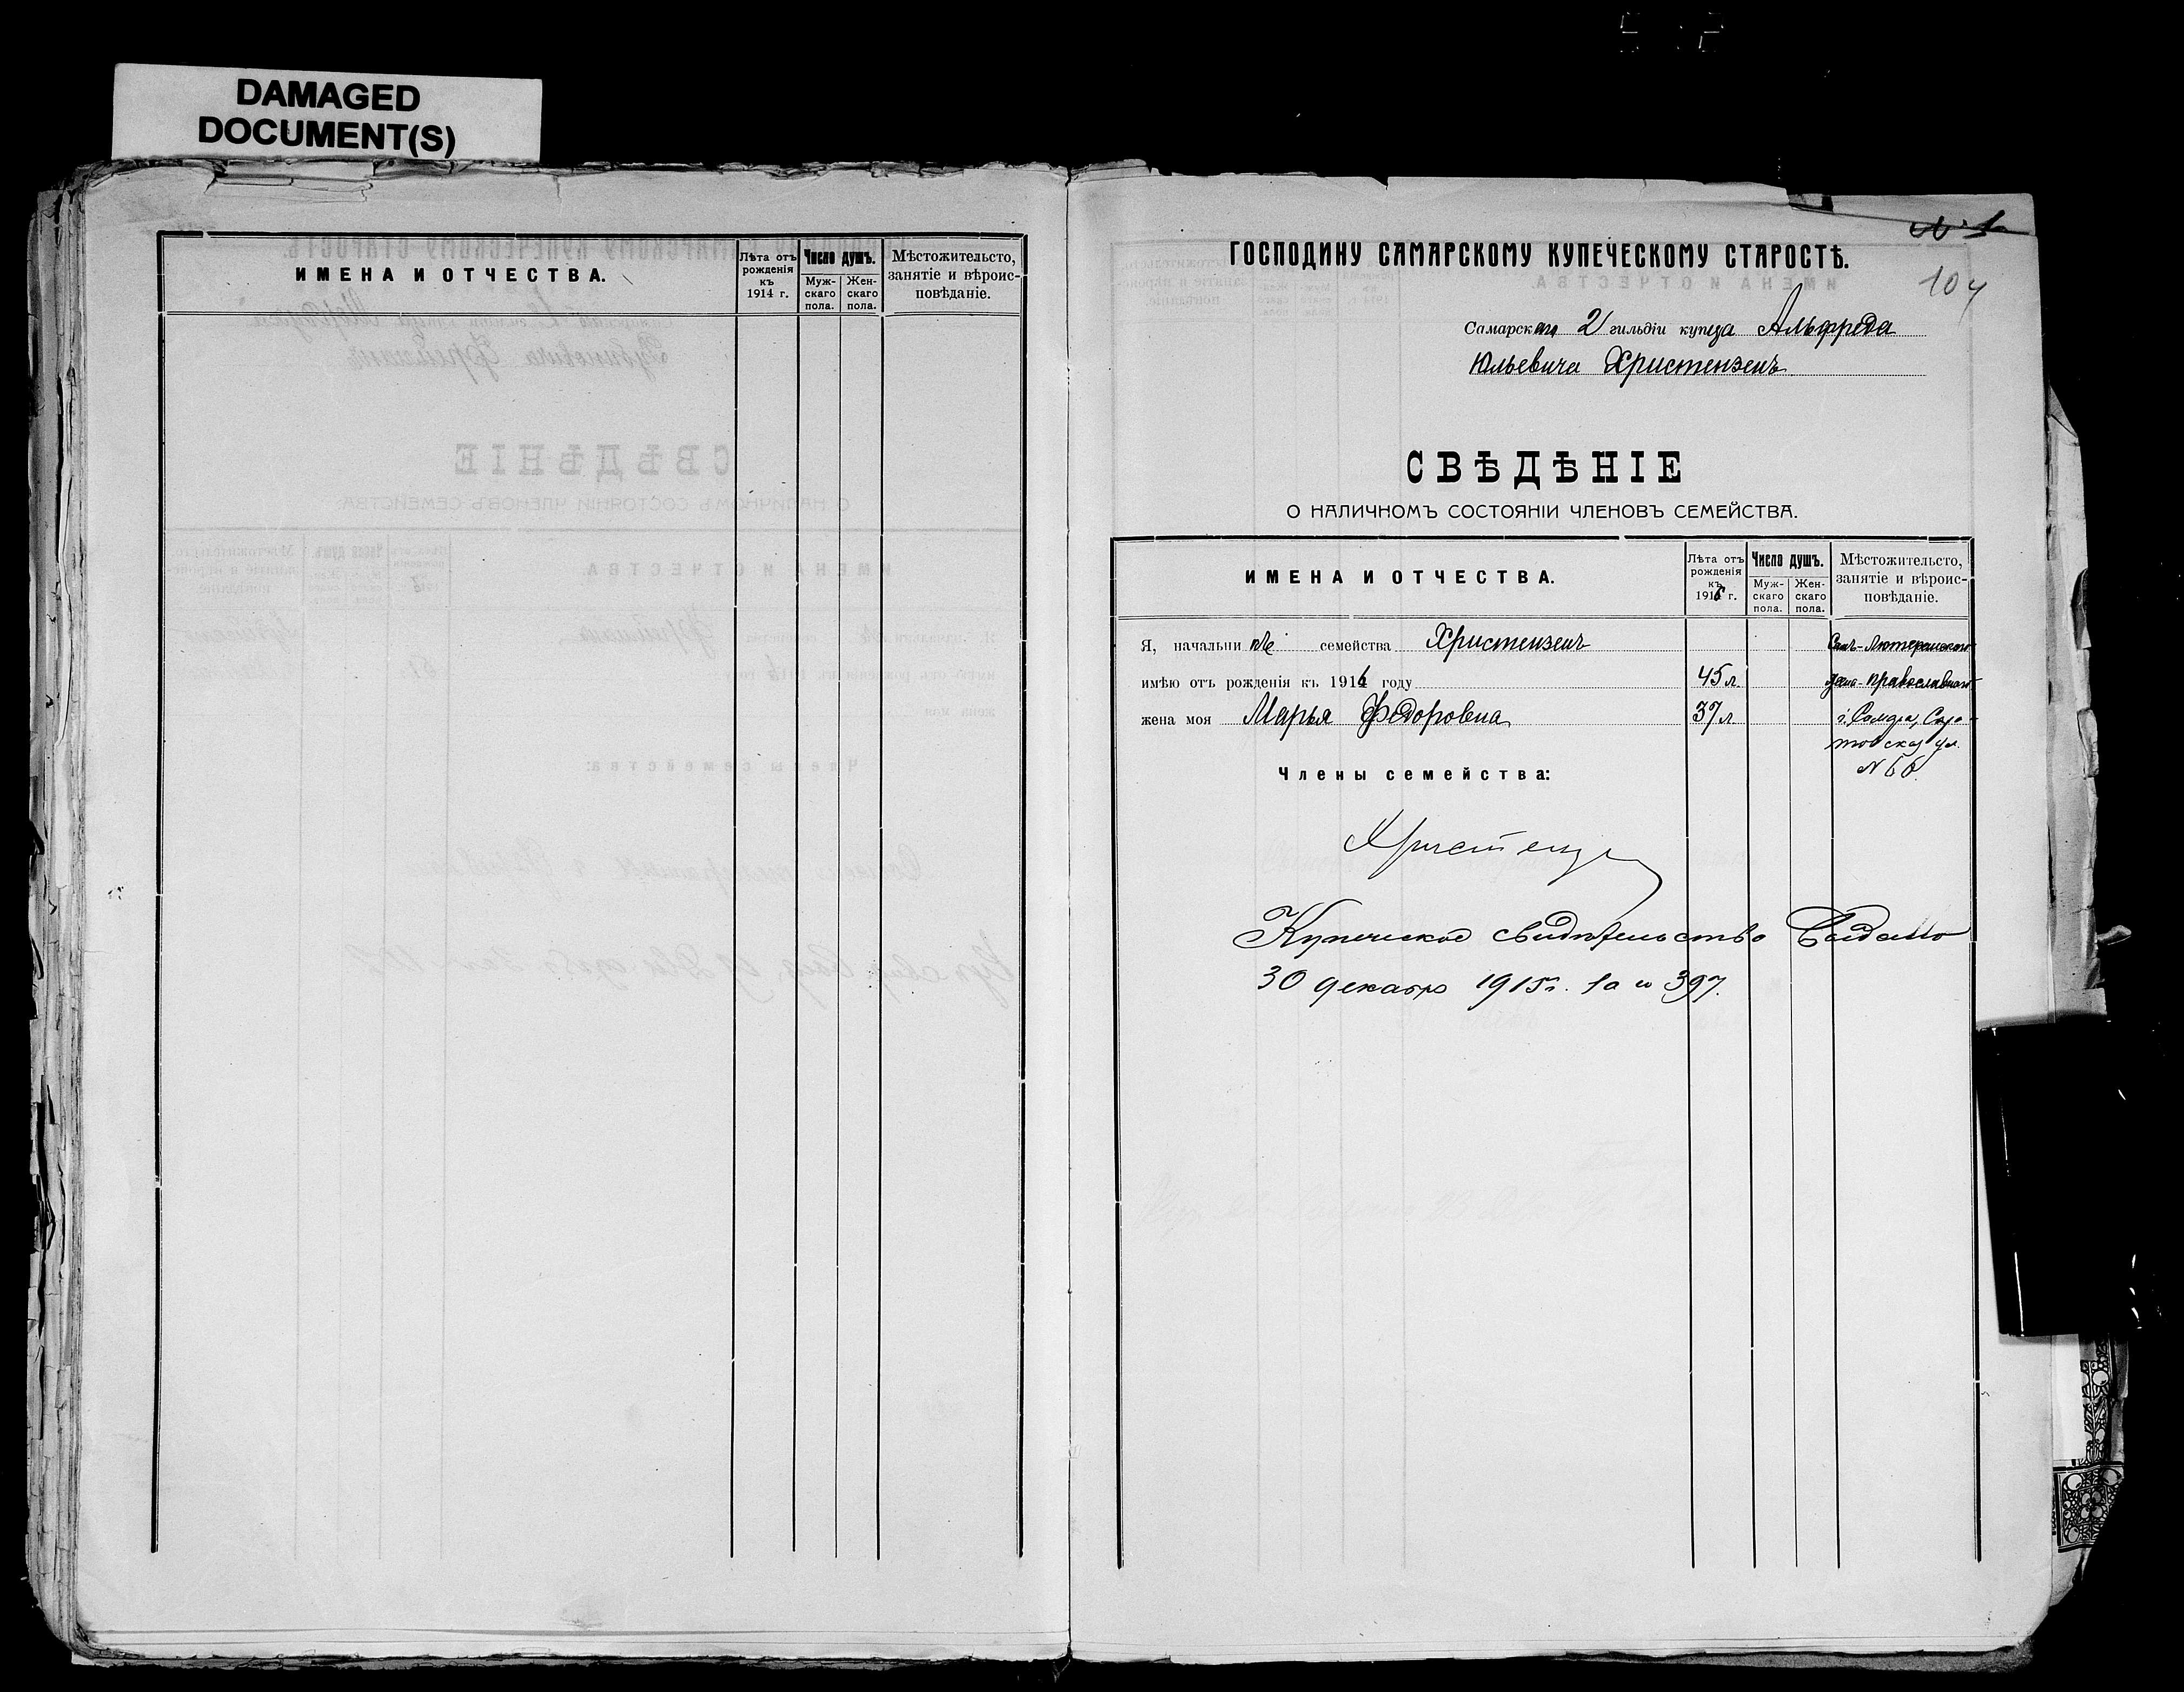 DAMAGED
DOCUMENT(S)
ИМЕНА И ОТЧЕСТВА.
Лѣта отъ рожденія къ 1914 г.
Число душъ.
Муж-скаго пола.
Жен-скаго пола.
Мѣстожительсто,
занятіе и вѣроис-
повѣданіе.
№ 1
104
ГОСПОДИНУ САМАРСКОМУ КУПЕЧЕСКОМУ СТАРОСТѢ.
Самарскаго 2 гильдіи купца Альфреда
Юльевича Христензенъ
СВѢДѢНІЕ
О НАЛИЧНОМЪ СОСТОЯНІИ ЧЛЕНОВЪ СЕМЕЙСТВА.
ИМЕНА И ОТЧЕСТВА.
Лѣта отъ рожденія къ 1916 г.
Число душъ.
Муж-скаго пола.
Жен-скаго пола.
Мѣстожительсто,
занятіе и вѣроис-
повѣданіе.
Я, начальникъ семейства Христензенъ Самъ-Лютеранскаго
имѣю отъ рожденія къ 1916 году 45 л. жена-православнаго
жена моя Марья Федоровна 37 л. г. Самара, Сара-
товская ул.
№ 66.
Члены семейства:
Христензен
Купеческое свидѣтельство выдано
30 декабря 1915 г. за № 397.